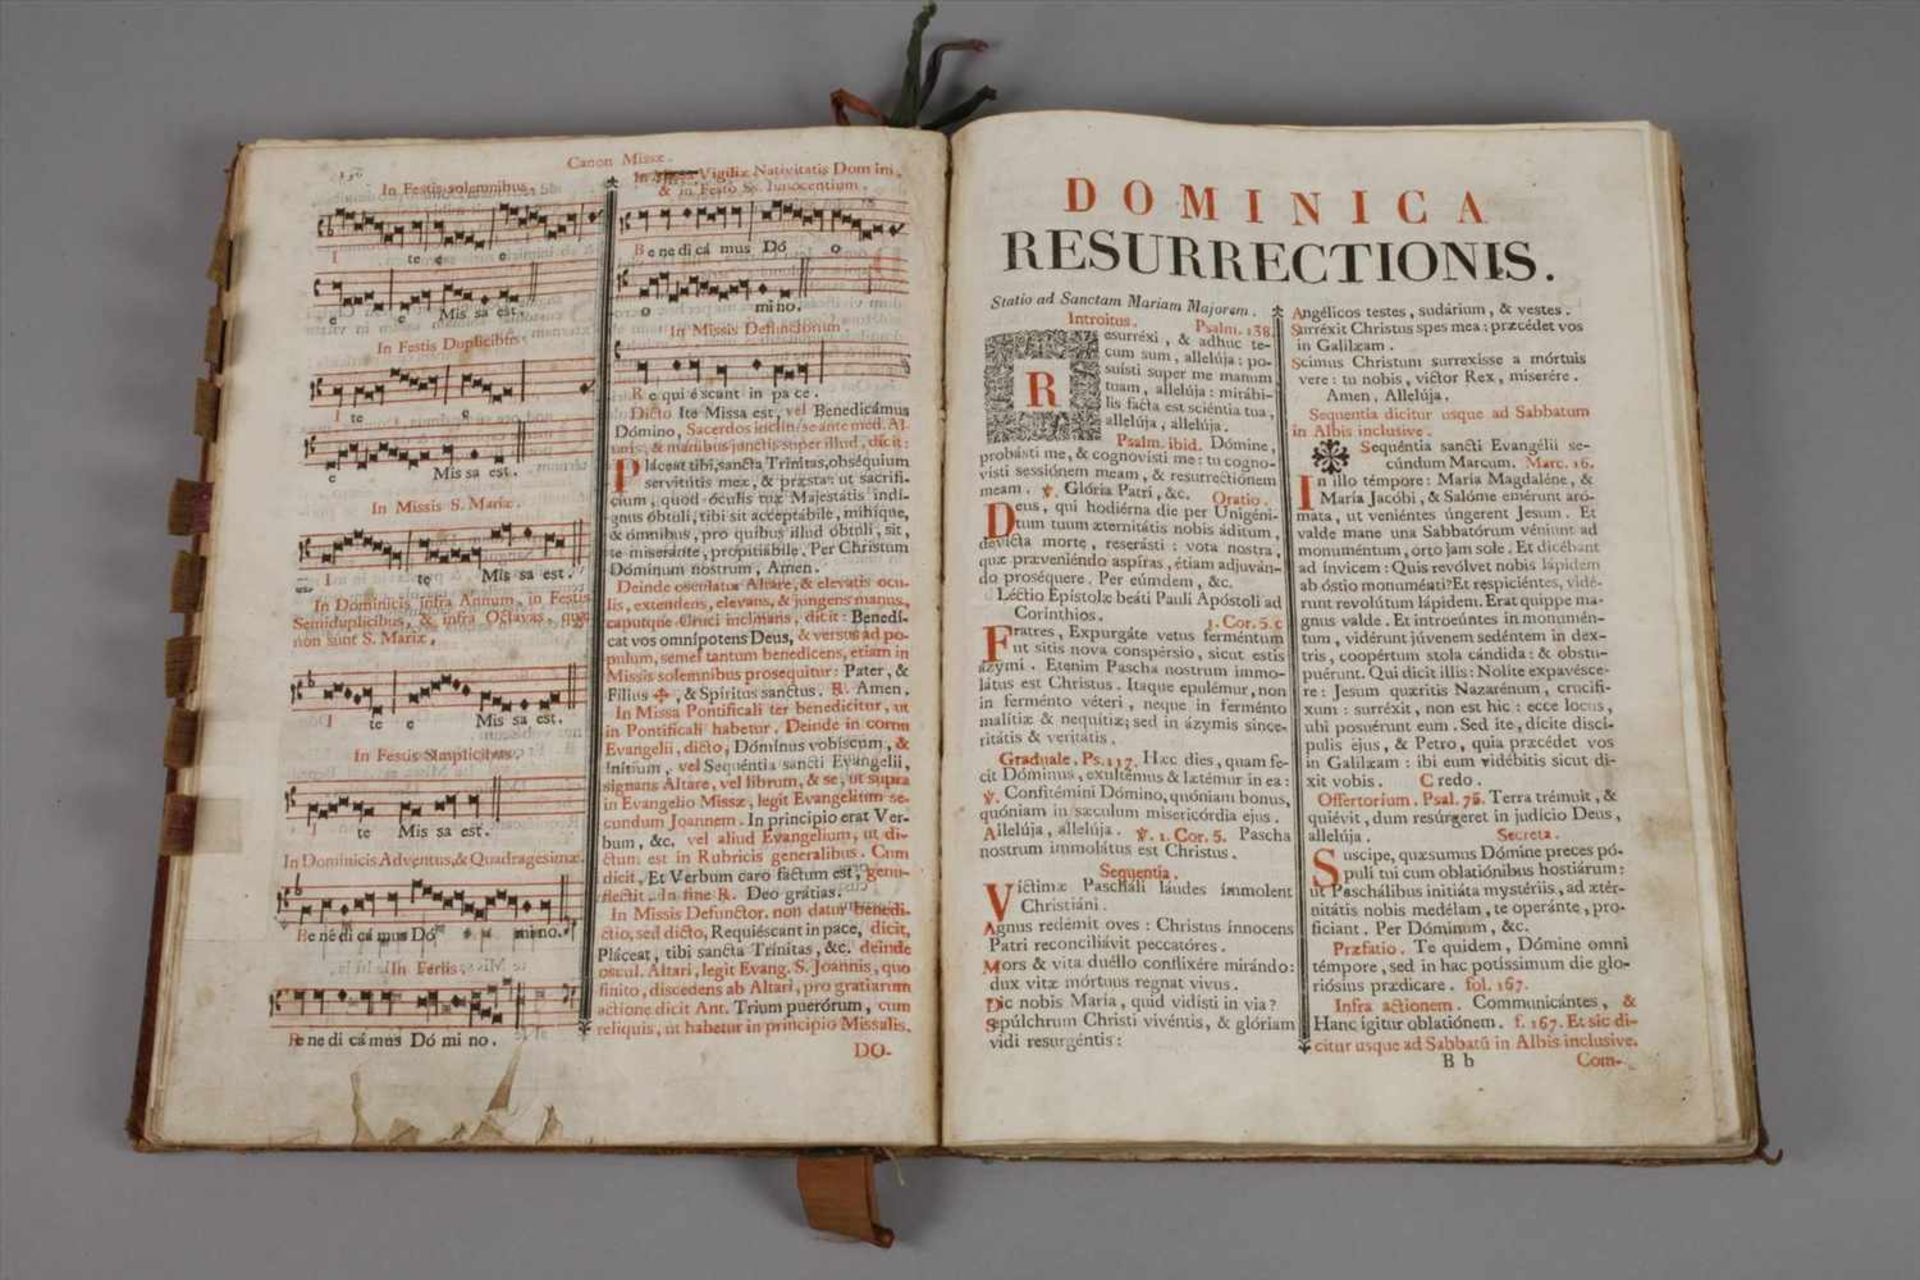 Canon Missæ.
In Festis solemnibus.
I te e e
e e Mis sa est.
In Festis Duplicibus.
I te e
e Mis sa est.
In Missis S. Mariæ.
I te Mis sa est.
In Dominicis infra Annum, in Festis
Semiduplicibus, & infra Octavas, quæ
non sunt S. Mariæ,
I te e Mis sa est.
In Festis Simplicibus.
I te Mis sa est.
In Dominicis Adventus, & Quadragesimæ.
Be ne di cá mus Dó mi no.
In Feriis.
Be ne di cá mus Dó mi no.
In Vigiliæ Nativitatis Domini,
& in Festo Ss. Innocentium.
Be ne di cá mus Dó o
o mi no.
In Missis Defunctorum.
Re qui é scant in pa ce.
Dicto Ite Missa est, vel Benedicámus
Dómino, Sacerdos inclin. se ante med. Al-
taris, & manibus junctis super illud, dicit:
Pláceat tibi, sancta Trínitas, obséquium
servitútis meæ, & præsta: ut sacrifí-
cium, quod óculis tuæ Majestátis indí-
gnus óbtuli, tibi sit acceptábile, mihíque,
& ómnibus, pro quibus illud óbtuli, sit,
te miseránte, propitiábile. Per Christum
Dóminum nostrum, Amen.
Deinde osculatur Altare, & elevatis ocu-
lis, extendens, elevans, & jungens manus,
caputque Cruci inclinans, dicit: Benedí-
cat vos omnípotens Deus, & versus ad po-
pulum, semel tantum benedicens, etiam in
Missis solemnibus prosequitur: Pater, &
Fílius ✠, & Spíritus sanctus. ℟. Amen.
In Missa Pontificali ter benedicitur, ut
in Pontificali habetur. Deinde in cornu
Evangelii, dicto, Dóminus vobíscum, &
Inítium, vel Sequéntia sancti Evangélii,
signans Altare, vel librum, & se, ut supra
in Evangelio Missæ, legit Evangelium se-
cundum Joannem. In princípio erat Ver-
bum, &c. vel aliud Evangelium, ut di-
ctum est in Rubricis generalibus. Cum
dicit, Et Verbum caro factum est, genu-
flectit. In fine ℟. Deo grátias.
In Missis Defunctor. non datur benedi-
ctio, sed dicto, Requiéscant in pace, dicit,
Pláceat, tibi sancta Trínitas, &c. deinde
oscul. Altari, legit Evang. S. Joannis, quo
finito, discedens ab Altari, pro gratiarum
actione dicit Ant. Trium puerórum, cum
reliquis, ut habetur in principio Missalis.
DO-
DOMINICA
RESURRECTIONIS.
Statio ad Sanctam Mariam Majorem.
Introitus. Psalm. 138.
Resurréxi, & adhuc te-
cum sum, allelúja: po-
suísti super me manum
tuam, allelúja: mirábi-
lis facta est sciéntia tua,
allelúja, allelúja.
Psalm. ibid. Dómine,
probásti me, & cognovísti me: tu cogno-
vísti sessiónem meam, & resurrectiónem
meam. ℣. Glória Patri, &c. Oratio.
Deus, qui hodiérna die per Unigéni-
tum tuum æternitátis nobis áditum,
devícta morte, reserásti: vota nostra,
quæ præveniéndo aspíras, étiam adjuván-
do proséquere. Per eúmdem, &c.
Léctio Epístolæ beáti Pauli Apóstoli ad
Corínthios. 1. Cor. 5. c
Fratres, Expurgáte vetus ferméntum
ut sitis nova conspérsio, sicut estis
ázymi. Etenim Pascha nostrum immo-
látus est Christus. Itaque epulémur, non
in ferménto véteri, neque in ferménto
malítiæ & nequítiæ; sed in ázymis since-
ritátis & veritátis.
Graduale. Ps. 117. Hæc dies, quam fe-
cit Dóminus, exultémus & lætémur in ea:
℣. Confitémini Dómino, quóniam bonus,
quóniam in sæculum misericórdia ejus.
Allelúja, allelúja. ℣. 1. Cor. 5. Pascha
nostrum immolátus est Christus.
Sequentia.
Víctimæ Pascháli láudes ímmolent
Christiáni.
Agnus redémit oves: Christus ínnocens
Patri reconciliávit peccatóres.
Mors & vita duéllo conflixére mirándo:
dux vitæ mórtuus regnat vivus.
Dic nobis María, quid vidísti in via?
Sepúlchrum Christi vivéntis, & glóriam
vidi resurgéntis:
Angélicos testes, sudárium, & vestes.
Surréxit Christus spes mea: præcédet vos
in Galilæam.
Scimus Christum surrexísse a mórtuis
vere: tu nobis, victor Rex, miserére.
Amen, Allelúja.
Sequentia dicitur usque ad Sabbatum
in Albis inclusive.
Sequéntia sancti Evangélii se-
cúndum Marcum. Marc. 16.
In illo témpore: María Magdaléne, &
María Jacóbi, & Salóme emérunt aró-
mata, ut veniéntes úngerent Jesum. Et
valde mane una Sabbatórum véniunt ad
monuméntum, orto jam sole. Et dicébant
ad ínvicem: Quis revólvet nobis lápidem
ab óstio monuménti? Et respiciéntes, vidé-
runt revolútum lápidem. Erat quippe ma-
gnus valde. Et introeúntes in monumén-
tum, vidérunt júvenem sedéntem in dex-
tris, coopértum stola cándida: & obstu-
puérunt. Qui dicit illis: Nolíte expavésce-
re: Jesum quæritis Nazarénum, crucifí-
xum: surréxit, non est hic: ecce locus,
ubi posuérunt eum. Sed ite, dícite discí-
pulis ejus, & Petro, quia præcédet vos
in Galilæam: ibi eum vidébitis sicut di-
xit vobis. Credo.
Offertorium. Psal. 75. Terra trémuit, &
quiévit, dum resúrgeret in judício Deus,
allelúja. Secreta.
Súscipe, quæsumus Dómine preces pó-
puli tui cum oblatiónibus hostiárum:
ut Paschálibus initiáta mystériis, ad ætér-
nitátis nobis medélam, te operánte, pro-
fíciant. Per Dóminum, &c.
Præfatio. Te quidem, Dómine omni
témpore, sed in hac potíssimum die glo-
riósius prædicáre. fol. 167.
Infra actionem. Communicántes, &
Hanc ígitur oblatiónem. f. 167. Et sic di-
citur usque ad Sabbatū in Albis inclusive.
B b Com-